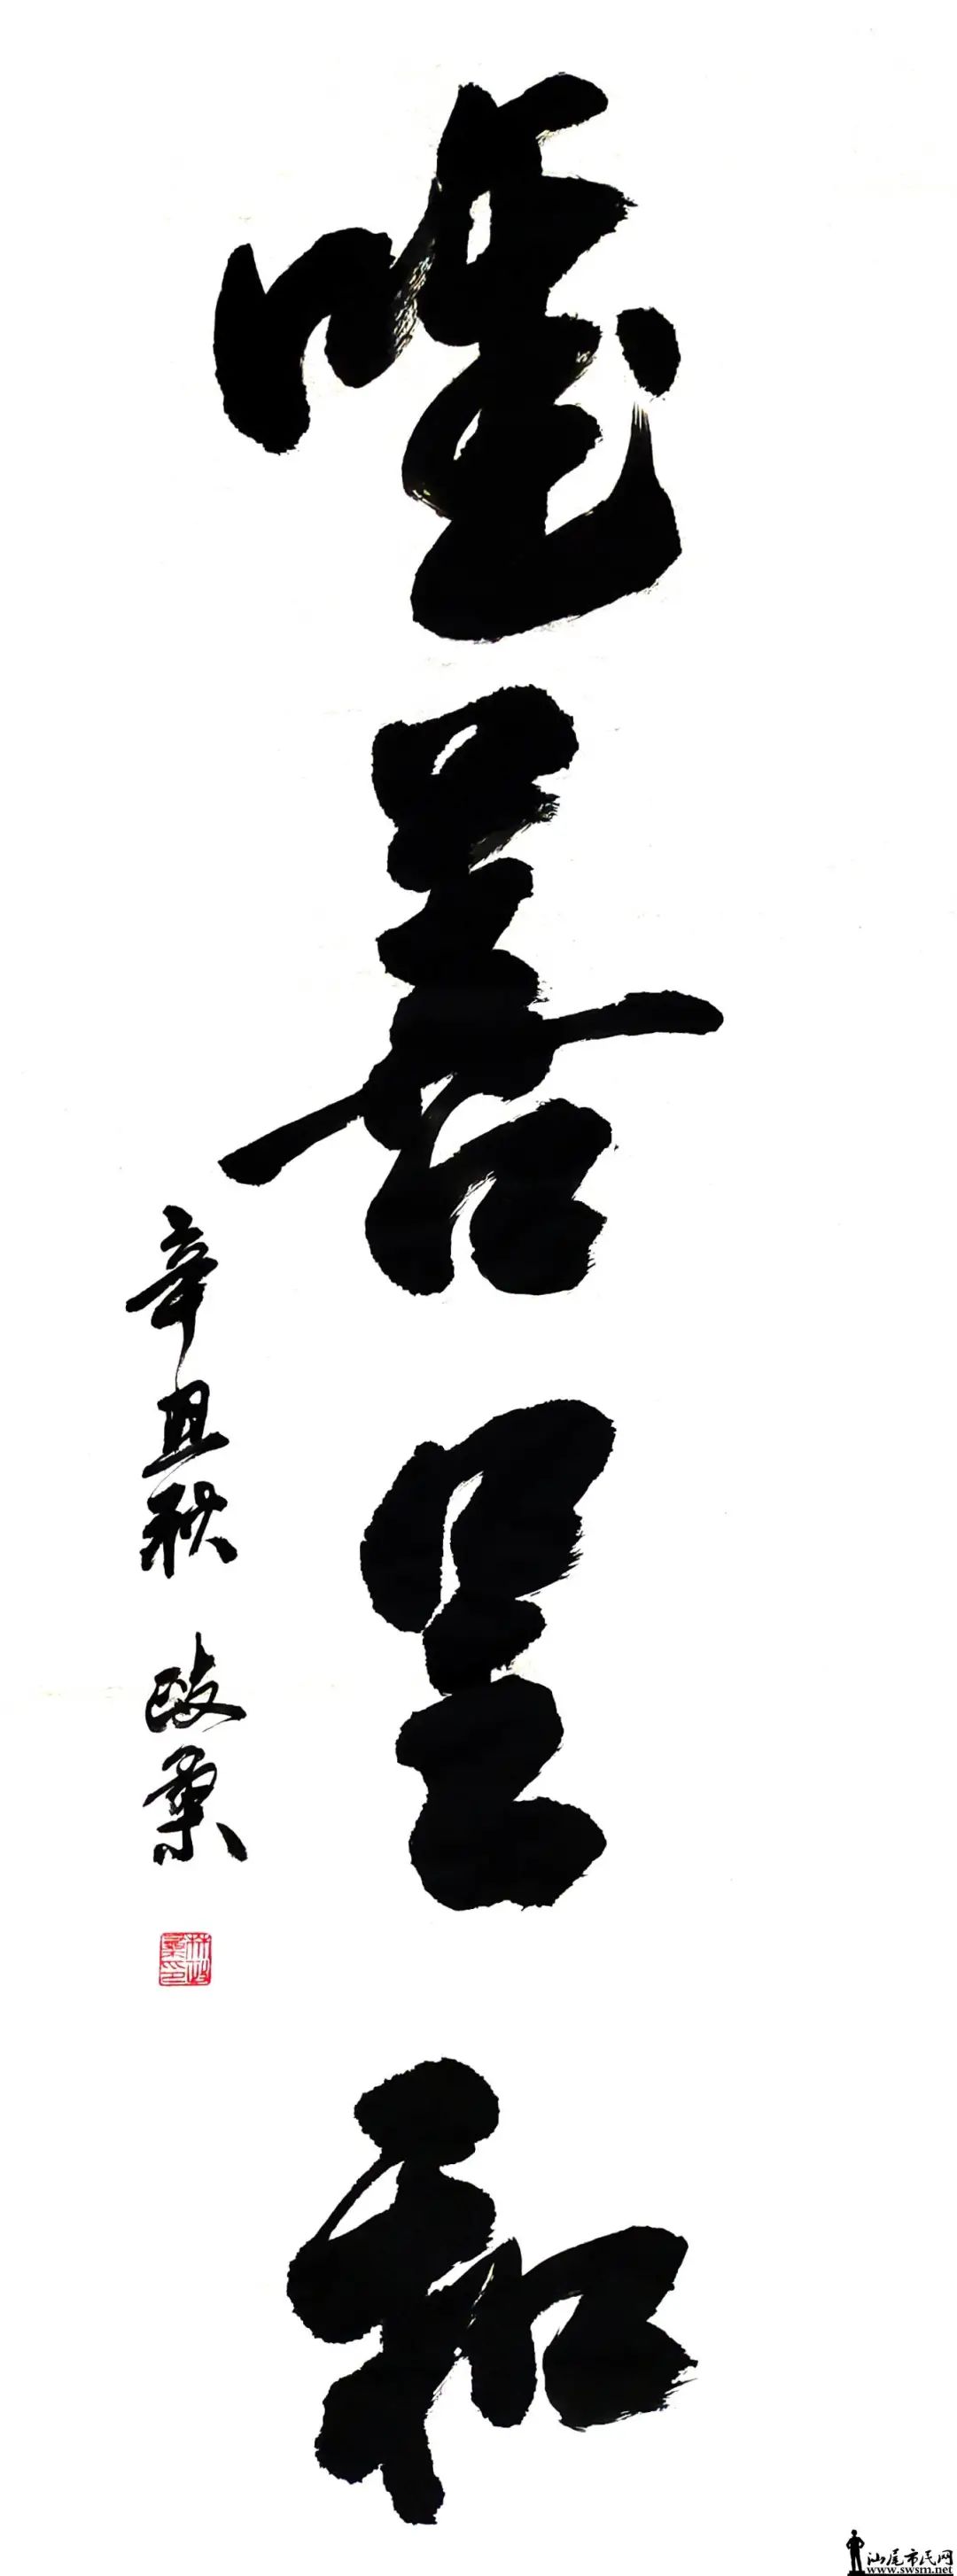 唯善呈和
辛丑秋 政
汕尾市民网
www.swsm.net